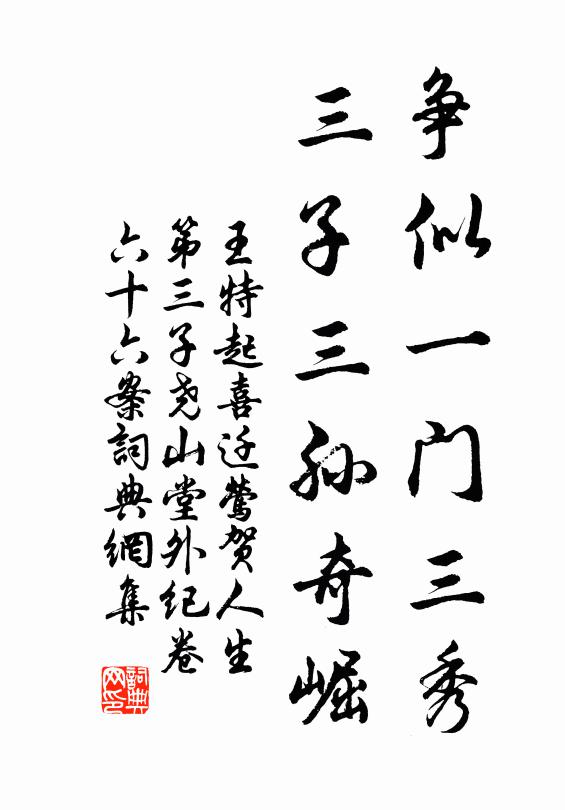 争似一门三秀
三子三孙奇崛
王特起喜迁莺贺人生
第三子尧山堂外纪卷
六十六案詞典網集
詞典
网印